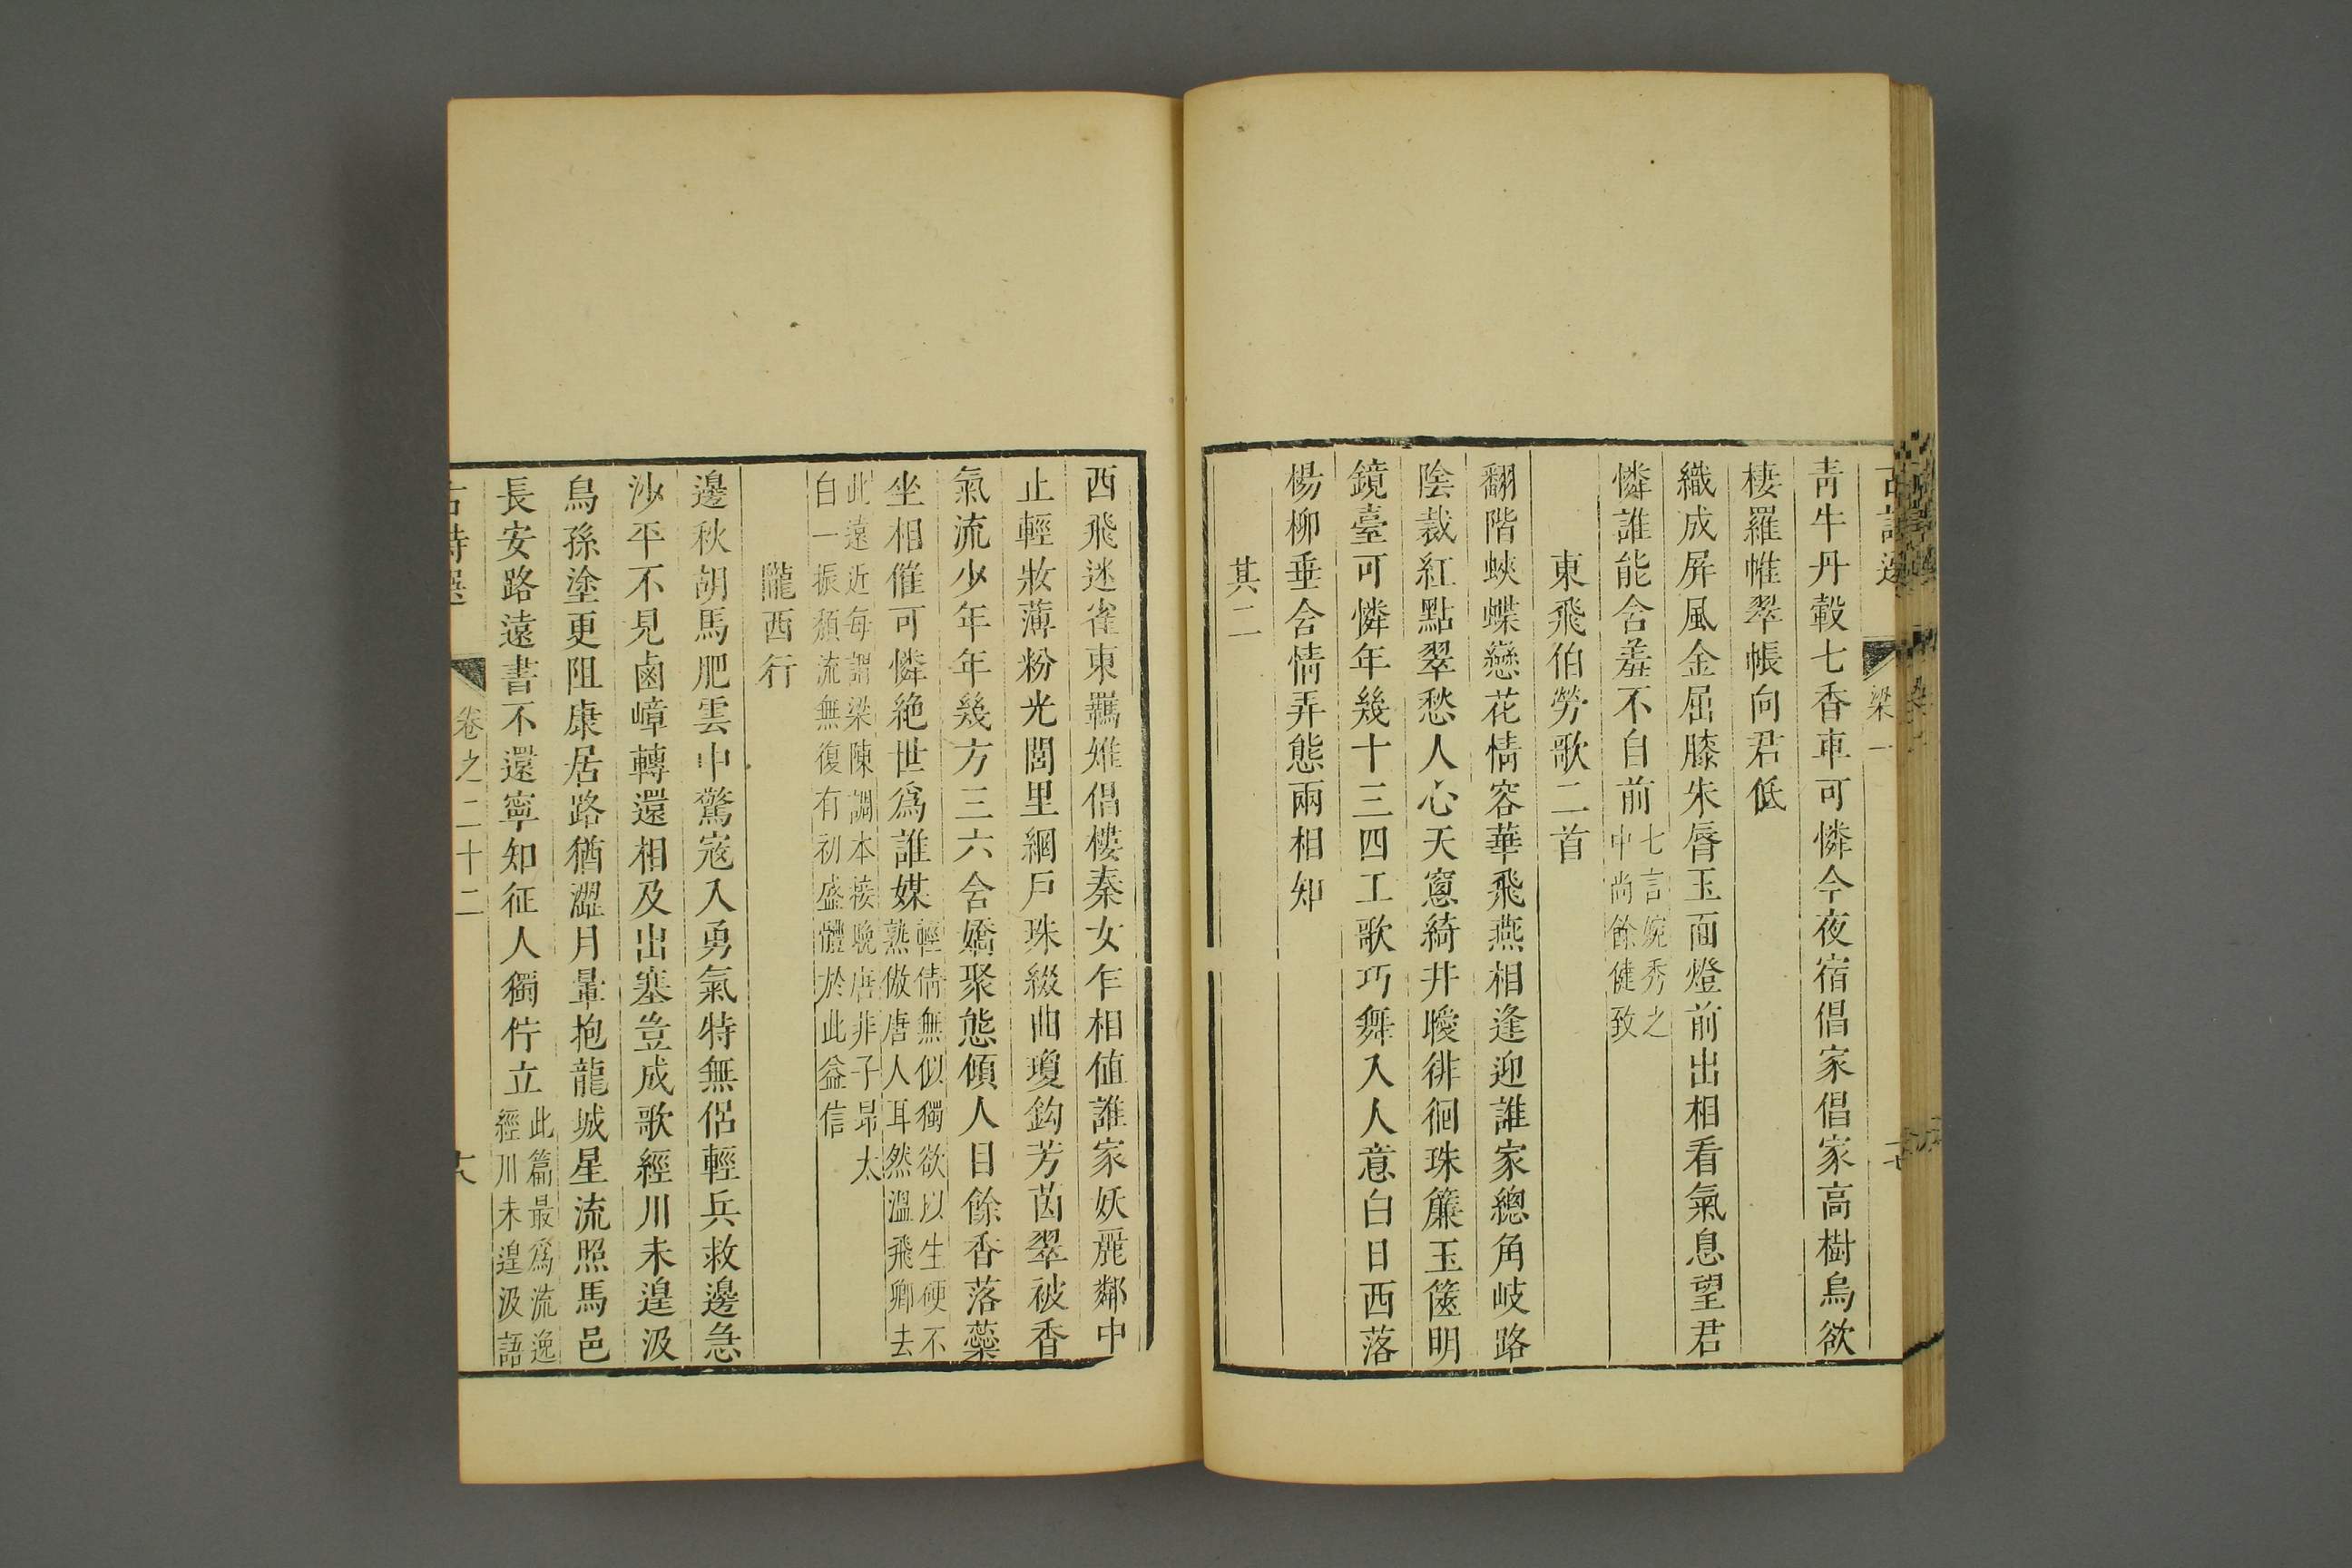 古詩選 梁一
青牛丹轂七香車可憐今夜宿倡家倡家高樹烏欲
棲羅帷翠帳向君低
織成屏風金屈膝朱脣玉面燈前出相看氣息望君
憐誰能含羞不自前
七言婉秀之
中尚餘健致
東飛伯勞歌二首
翻階蛺蝶戀花情容華飛燕相逢迎誰家總角岐路
陰裁紅點翠愁人心天窻綺井曖徘徊珠簾玉篋明
鏡臺可憐年幾十三四工歌巧舞入人意白日西落
楊柳垂含情弄態兩相知
其二
西飛迷雀東羈雉倡樓秦女乍相值誰家妖麗鄰中
止輕妝薄粉光閭里網戶珠綴曲瓊鈎芳茵翠被香
氣流少年年幾方三六含嬌聚態傾人目餘香落蘂
坐相催可憐絶世爲誰媒
輕倩無似獨欲以生硬不
熟倣唐人耳然溫飛卿去
此遠近每謂梁陳調本接晩唐非子昂太
白一振頹流無復有初盛體於此益信
隴西行
邊秋胡馬肥雲中驚寇入勇氣特無侶輕兵救邊急
沙平不見鹵嶂轉還相及出塞豈成歌經川未遑汲
烏孫塗更阻康居路猶澀月暈抱龍城星流照馬邑
長安路遠書不還寧知征人獨佇立
此篇最爲流逸
經川未遑汲語
古詩選 卷之二十二